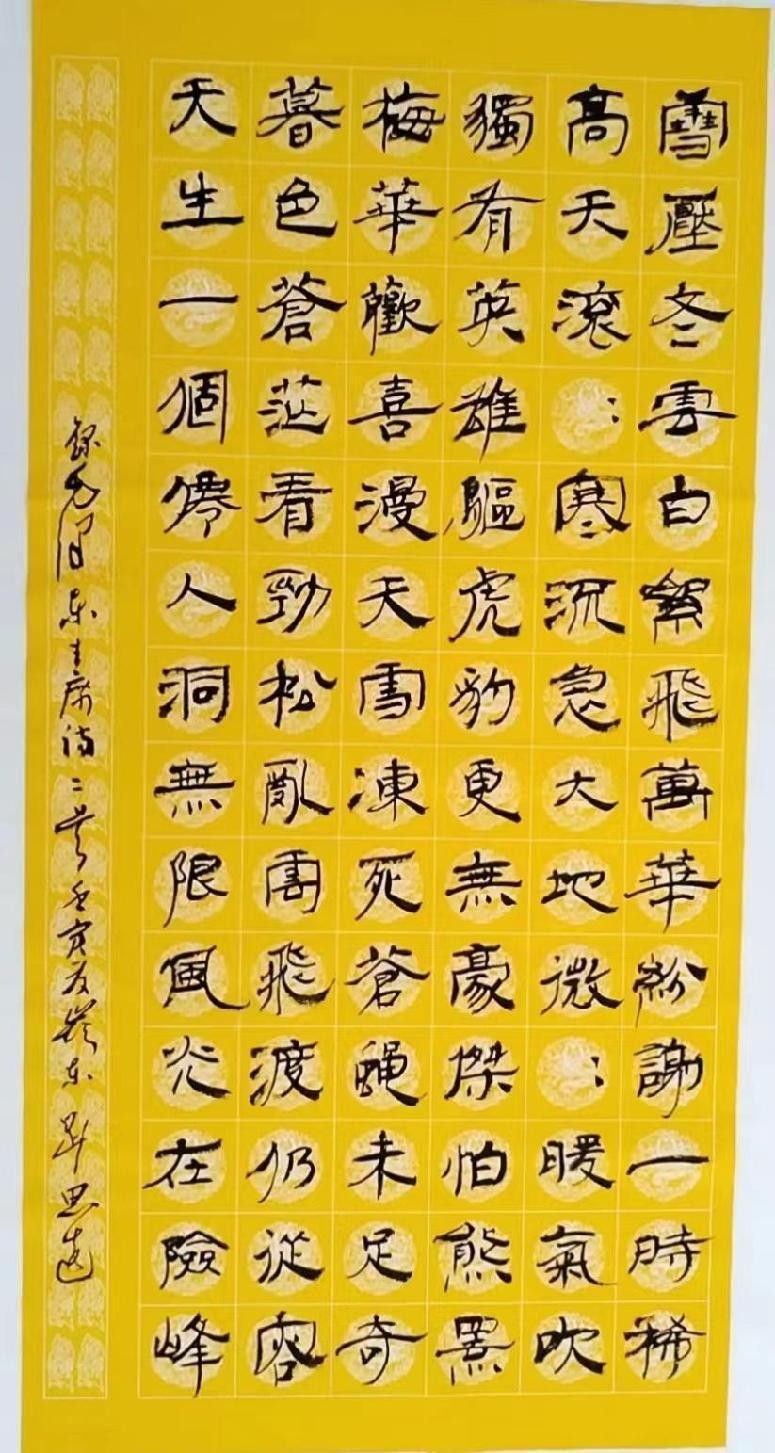 雪壓冬雲白絮飛萬華紛謝一時稀
高天滾：寒流急大地微：暖氣吹
獨有英雄驅虎豹更無豪傑怕熊羆
梅華歡喜漫天雪凍死蒼蠅未足奇
暮色蒼茫看勁松亂雲飛渡仍從容
天生一個僊人洞無限風光在險峰
錄毛澤東主席詩二首壬寅夏嶺東思遠